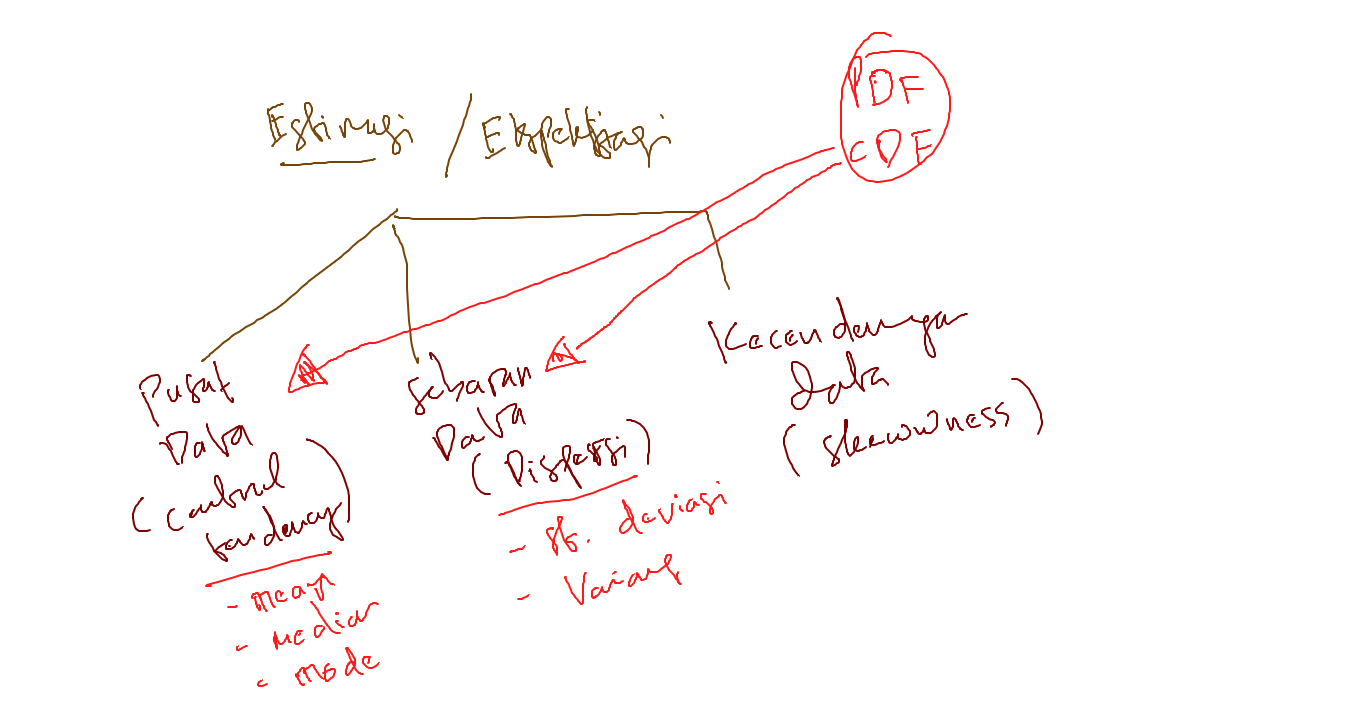 PDF
CDF
Estimasi / Ekspektasi
Pusat
Data
(Central
tendency)
- mean
- median
- mode
Sebaran
Data
(Dispersi)
- st. deviasi
- Varians
Kecenderungan
data
(skewwness)